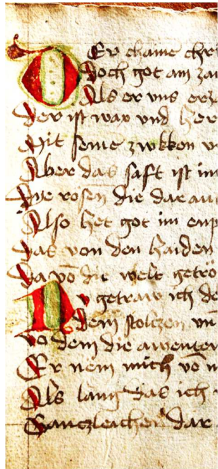 Er chame chri
Doch got am za
Als er vns erl
Der ist war vnd her
Mit seine zwkken v
Aber das saft ist im
Die rosen die dar au
Also het got im enp
Das von den haiden
Da vō die welt getro
getraw ich de
Dem stolczen vn
Vō dem die awenten
Er nem mich vō n
Als lang das ich
Ganczleichen dar